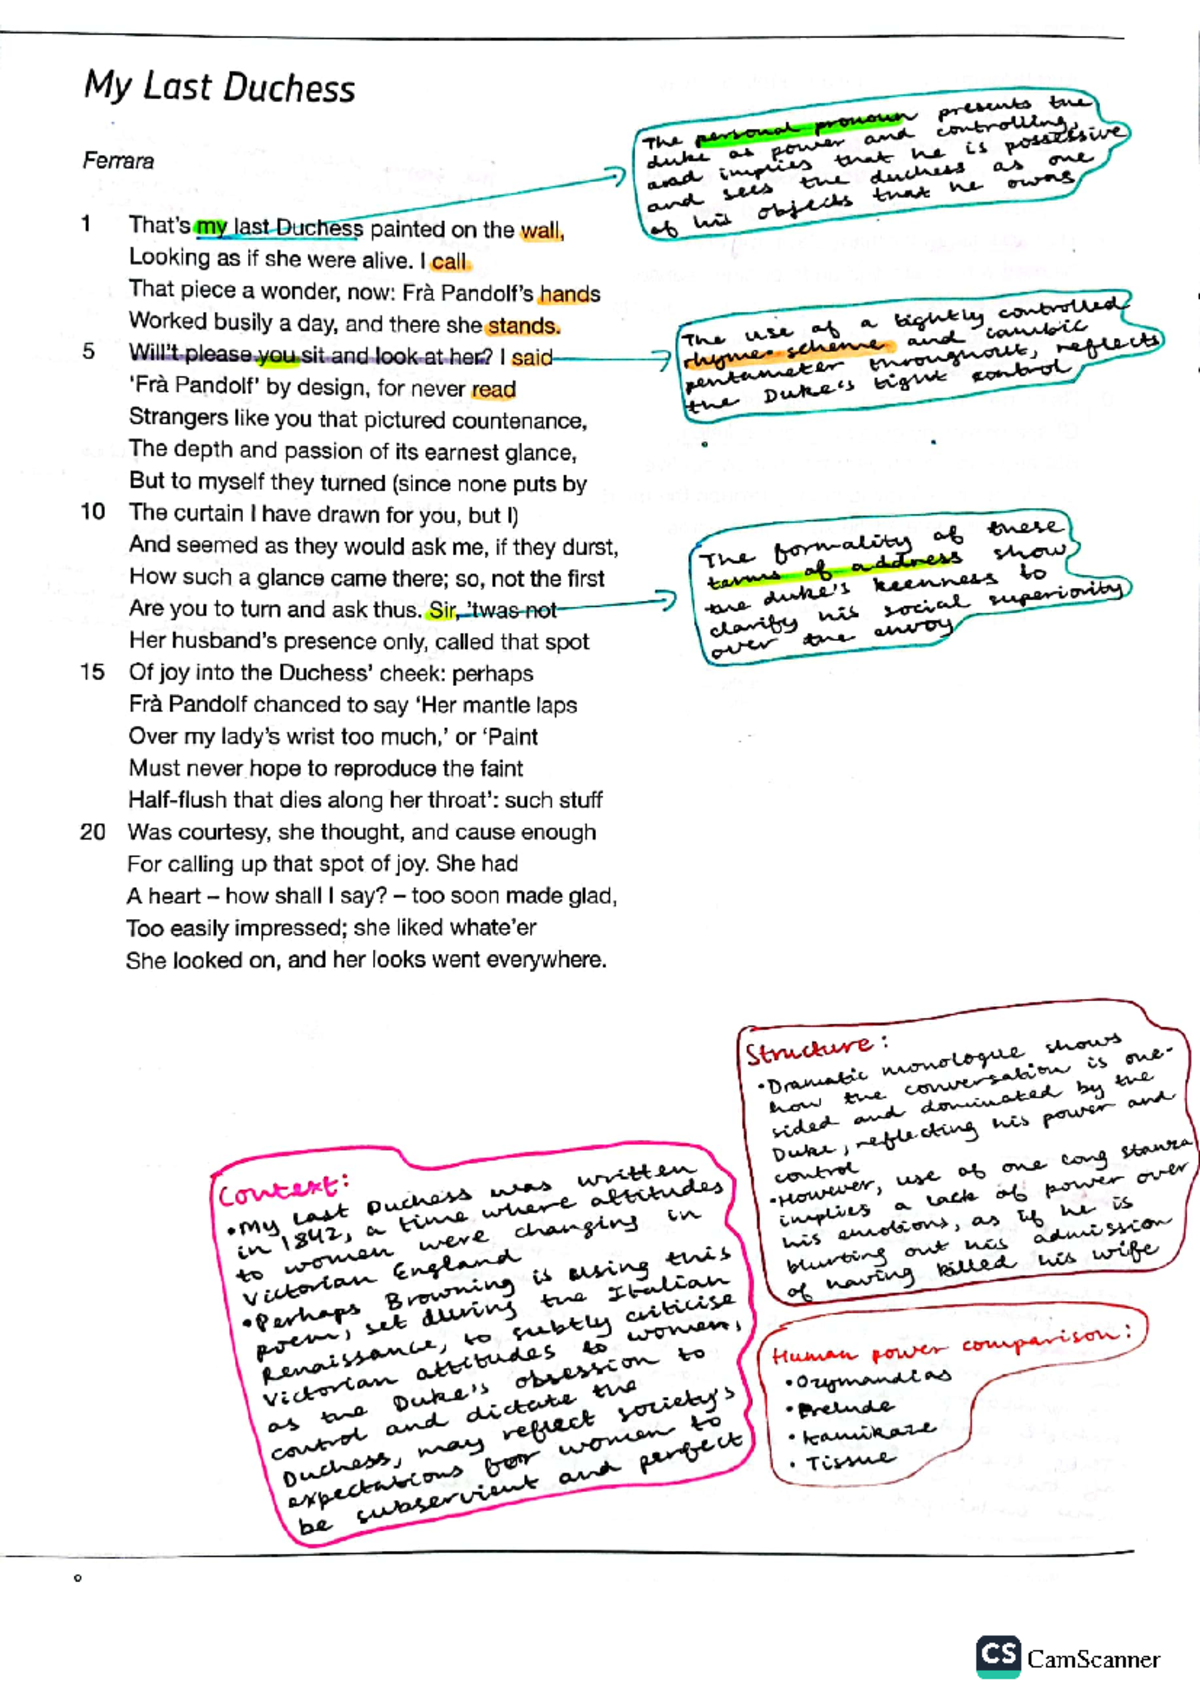 My Last Duchess
Ferrara
1 That's my last Duchess painted on the wall,
Looking as if she were alive. I call
That piece a wonder, now: Frà Pandolf's hands
Worked busily a day, and there she stands.
5 Will't please you sit and look at her? I said
'Frà Pandolf' by design, for never read
Strangers like you that pictured countenance,
The depth and passion of its earnest glance,
But to myself they turned (since none puts by
10 The curtain I have drawn for you, but I)
And seemed as they would ask me, if they durst,
How such a glance came there; so, not the first
Are you to turn and ask thus. Sir, 'twas not
Her husband's presence only, called that spot
15 Of joy into the Duchess' cheek: perhaps
Frà Pandolf chanced to say 'Her mantle laps
Over my lady's wrist too much,' or 'Paint
Must never hope to reproduce the faint
Half-flush that dies along her throat': such stuff
20 Was courtesy, she thought, and cause enough
For calling up that spot of joy. She had
A heart – how shall I say? – too soon made glad,
Too easily impressed; she liked whate'er
She looked on, and her looks went everywhere.
The personal pronoun presents the
duke as power and controlling,
and implies that he is possessive
and sees the duchess as one
of his objects that he owns
The use of a tightly controlled
rhyme scheme and iambic
pentameter throughout, reflects
the Duke's tight control
The formality of these
terms of address show
the duke's keenness to
clarify his social superiority
over the envoy
Structure:
• Dramatic monologue shows
how the conversation is one-
sided and dominated by the
Duke, reflecting his power and
control
• However, use of one long stanza
implies a lack of power over
his emotions, as if he is
blurting out his admission
of having killed his wife
Context:
• My Last Duchess was written
in 1842, a time where attitudes
to women were changing in
Victorian England
• Perhaps Browning is using this
poem, set during the Italian
Renaissance, to subtly criticise
Victorian attitudes to women,
as the Duke's obsession to
control and dictate the
Duchess, may reflect society's
expectations for women to
be subservient and perfect
Human power comparison:
• Ozymandias
• Prelude
• Kamikaze
• Tissue
CS CamScanner